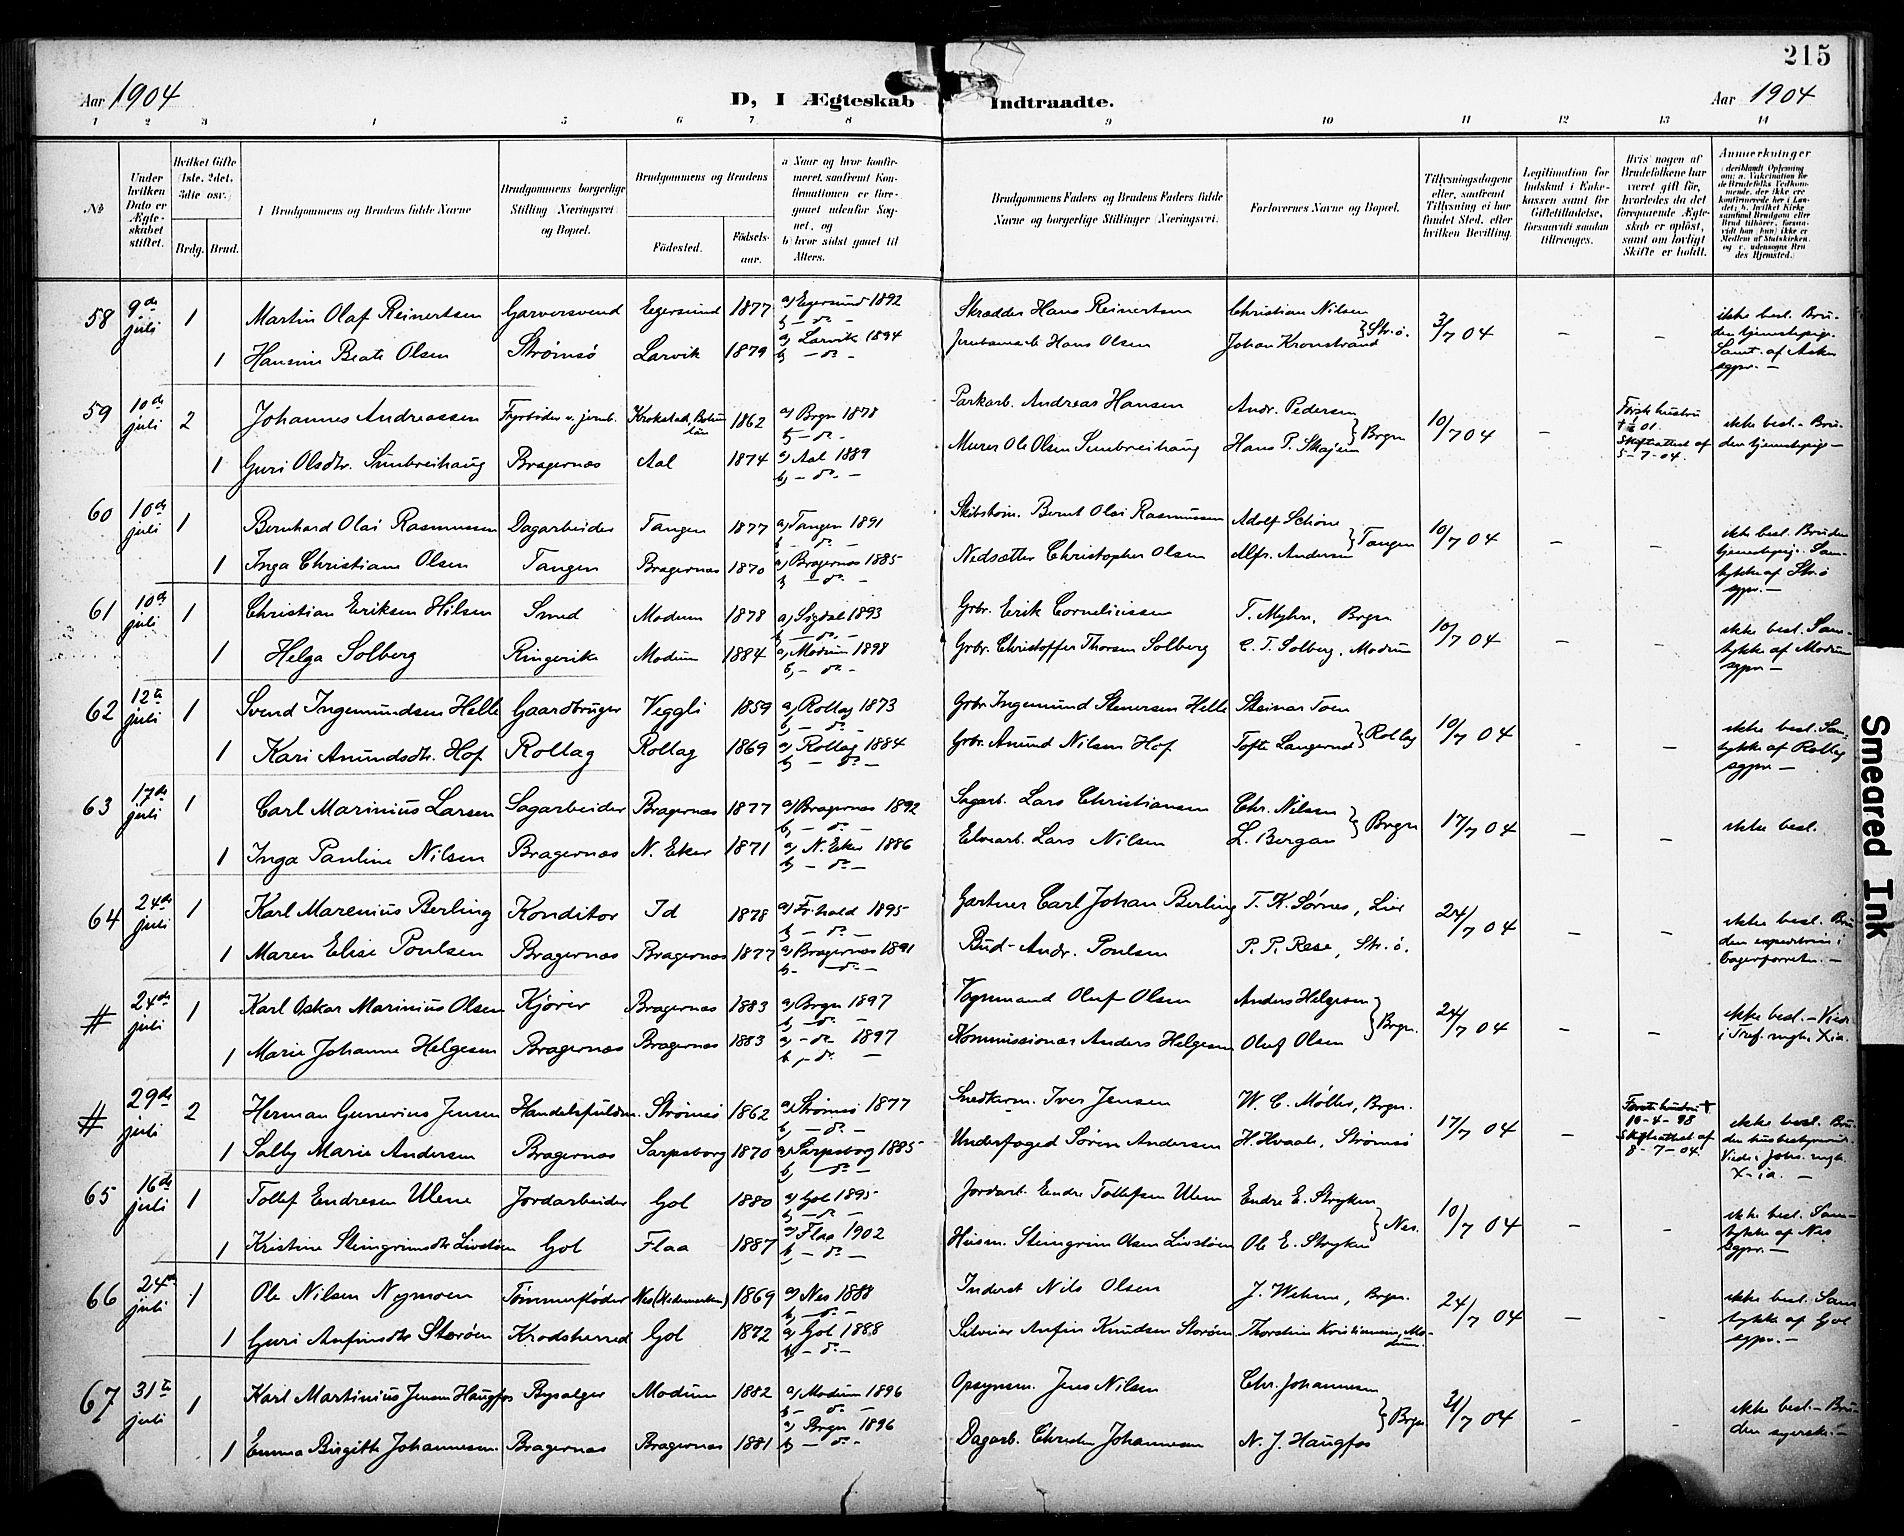 215
Aar 1904
D, I Ægteskab Indtraadte.
Aar 1904
1 2 3 4 5 6 7 8 9 10 11 12 13 14
No
Under hvilken Dato er Ægteskabet stiftet.
Hvilket Gifte (1ste, 2det, 3die osv.)
Brdg. Brud.
Brudgommens og Brudens fulde Navne
Brudgommens borgerlige Stilling (Næringsvei) og Bopæl.
Brudgommens og Brudens
Fødested. Fødselsaar.
a) Naar og hvor konfirmeret, samt om Konfirmationen er foregaaet udenfor Sognet, og
b) hvor sidst gaaet til Alters.
Brudgommens Faders og Brudens Faders fulde Navne og borgerlige Stillinger (Næringsvei).
Forlovernes Navne og Bopæl.
Tillysningsdagene eller, saafremt Tillysning ei har fundet Sted, efter hvilken Bevilling.
Legitimation for Indskud i Enkekassen samt for Giftetilladelse, forsaavidt saadan tiltrænges.
Hvis nogen af Brudefolkene har været gift før, hvorledes da det foregaaende Ægteskab er opløst, samt om lovligt Skifte er holdt.
Anmerkninger
58 9de juli 1 Martin Olaf Reinertsen Garversvend Egersund 1877 a) Egersund 1892 b) – do. – Skrædder Hans Reinertsen Christian Nilsen
1 Hansine Beate Olsen Strømsø Larvik 1879 a) Larvik 1894 b) – do. – Hans Olsen Johan Kronstrand } Str.ø. 3/7 04 – – ikke besl. Bruden tjenestepige. Samt. af Asker sgpr. –
59 10de juli 2 Johannes Andreassen Fyrbøder v. jernb. Krokstad, 1862 a) Brgn 1878 b) – do. – Parkarb. Andreas Hansen Andr. Pedersen
1 Guri Olsdtr. Sunbreihaug Bragernæs Aal 1874 a) Aal 1889 b) – do. – Murer Ole Olsen Sunbreihaug Hans P. Skajem } Brgn 10/7 04 – Første hustru † 01. Skifteattest af 5-7-04. ikke besl. – Bruden tjenestepige –
60 10de juli 1 Bernhard Olai Rasmussen Dagarbeider Tangen 1877 a) Tangen 1891 b) – do. – Skibstøm. Bernt Olai Rasmussen Adolf Schøne
1 Inga Christiane Olsen Tangen Bragernæs 1870 a) Bragernæs 1885 b) – do. – Nedsætter Christopher Olsen Alfr. Andersen } Tangen 10/7 04 – – ikke besl. Bruden tjenestepig. Samtykke af Strø sgpr. –
61 10de juli 1 Christian Eriksen Hilsen Smed Modum 1878 a) Sigdal 1893 b) – do. – Grbr. Erik Corneliussen T. Myhre, Brgn
1 Helga Solberg Ringerike Modum 1884 a) Modum 1898 b) – do. – Grbr. Christoffer Thorsen Solberg C. T. Solberg, Modum 10/7 04 – – ikke besl. Samtykke af Modum sgpr –
62 12te juli 1 Svend Ingemundsen Helle Gaardbruger Veggli 1859 a) Rollag 1873 b) – do. – Grbr Ingemund Stenersen Helle Steinar Toen
1 Kari Amundsdtr. Hof Rollag Rollag 1869 a) Rollag 1884 b) – do. – Grbr. Amund Nilsen Hof Tofte Langerud } Rollag 10/7 04 – – ikke besl. Samtykke af Rollag sgpr –
63 17de juli 1 Carl Marinius Larsen Sagarbeider Bragernæs 1877 a) Bragernæs 1892 b) – do. – Sagarb. Lars Christiansen Chr. Nilsen
1 Inga Pauline Nilsen Bragernæs N. Eker 1871 a) N. Eker 1886 b) – do. – Elvearb. Lars Nilsen L. Bergan } Brgn 17/7 04 – – ikke besl.
64 24de juli 1 Karl Marenius Berling Konditor Id 1878 a) Fr.hald 1895 b) – do. – Gartner Carl Johan Berling T. K. Sørnes, Lier
1 Maren Elise Poulsen Bragernæs Bragernæs 1877 a) Bragernæs 1891 b) – do. – Bud – Andr. Poulsen P. P. Rese, Str.ø. 24/7 04 – – ikke besl. Bruden expeditrice i Bagerforretn. –
# 24de juli 1 Karl Oskar Marinius Olsen Kjører Bragernæs 1883 a) Brgn 1897 b) – do. – Vognmand Oluf Olsen Anders Helgesen
1 Marie Johanne Helgesen Bragernæs Bragernæs 1883 a) – do. – 1897 b) – do. – Kommissionær Anders Helgesen Oluf Olsen } Brgn. 24/7 04 – – ikke besl. – Viede
# 29de juli 2 Herman Gunerius Jensen Handelsfuldm. Strømsø 1862 a) Strømsø 1877 b) – do. – Snedkerm. Iver Jensen W. C. Møller, Brgn.
1 Salby Marie Andersen Bragernæs Sarpsborg 1870 a) Sarpsborg 1885 b) – do. – Underfoged Søren Andersen H. Hvaal, Strømsø 17/7 04 – Første hustru † 10-4-98 Skifteattest af 8-7-04. ikke besl. Bruden husbestyrerinde.
65 16de juli 1 Tollef Endresen Ulene Jordarbeider Gol 1880 a) Gol 1895 b) – do. – Jordarb. Endre Tollefsen Ulen Endre E. Stryken
1 Kristine Steingrimsdtr Livstøen Gol Flaa 1887 a) Flaa 1902 b) – do. – Husm. Steingrim Olsen Livstøen Ole E. Stryken } Nes. 10/7 04 – – ikke besl. Samtykke af Nes sgpr. –
66 24de juli 1 Ole Nilsen Nymoen Tømmerfløder Nes (Hedemarken) 1869 a) Nes 1888 b) – do. – Inderst Nils Olsen J. Wehme, Brgn.
1 Guri Anfinsdtr Storøen Krødsherred Gol 1872 a) Gol 1888 b) – do. – Selveier Anfin Knudsen Storøen Thordine Kristiansen, Modum 24/7 04 – – ikke besl. Samtykke af Gol sgpr. –
67 31te juli 1 Karl Martinius Jensen Haugfos Bysælger Modum 1882 a) Modum 1896 b) – do. – Opsynsm. Jens Nilsen Chr. Johannesen
1 Emma Birgitte Johannesen Bragernæs Bragernæs 1881 a) Brgn 1896 b) – do. – Dagarb. Christen Johannesen N. J. Haugfos } Brgn 31/7 04 – – ikke besl. – Bruden syerske. –
Smeared Ink